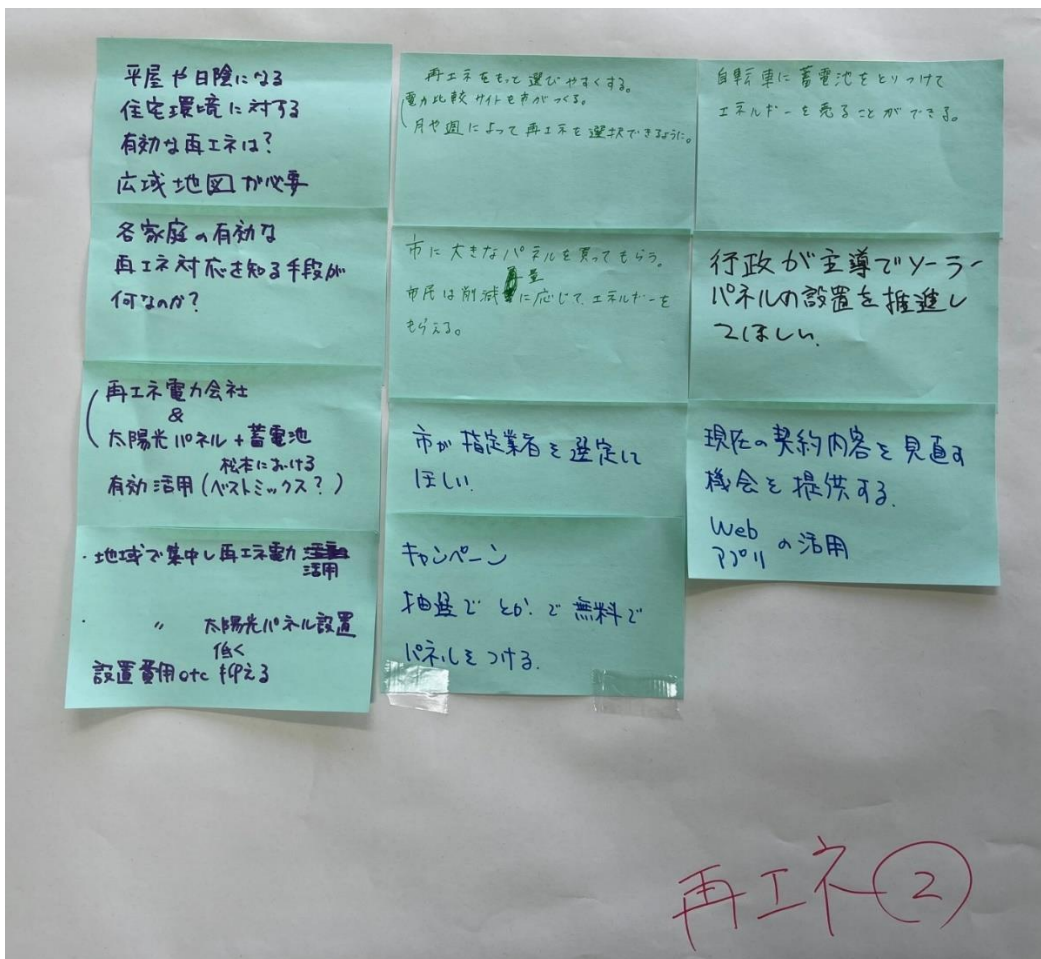 平屋や日陰になる
住宅環境に対する
有効な再エネは?
広域地図が必要
各家庭の有効な
再エネ対応を知る手段が
何なのか?
再エネ電力会社
&
太陽光パネル+蓄電池
松本における
有効活用(ベストミックス?)
・地域で集中し再エネ電力
活用
・ 〃 太陽光パネル設置
低く
設置費用otc 抑える
再エネをもっと選びやすくする。
電力比較サイトを市がつくる。
月や週によって再エネを選択できるように。
市に大きなパネルを買ってもらう。
市民は削減量に応じて、エネルギーを
もらえる。
市が指定業者を選定して
ほしい.
キャンペーン
抽選でとか.で無料で
パネルをつける.
自転車に蓄電池をとりつけて
エネルギーを売ることができる。
行政が主導でソーラー
パネルの設置を推進し
てほしい.
現在の契約内容を見直す
機会を提供する.
Web
アプリ の活用
再エネ②